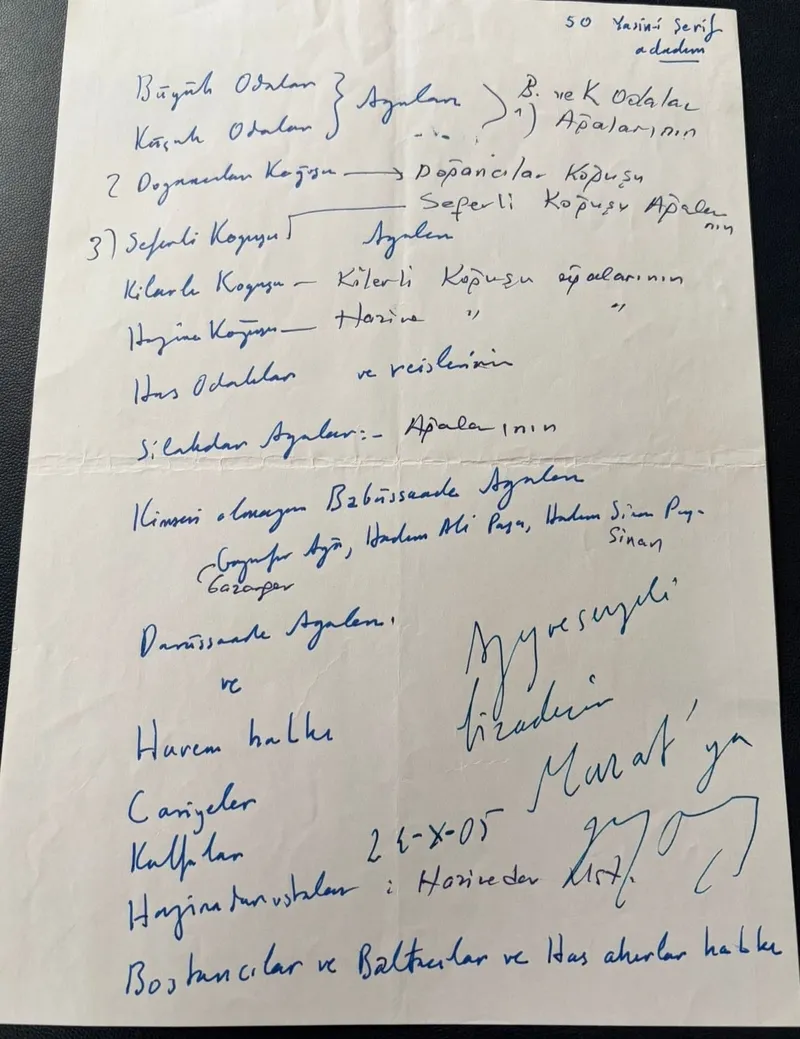 50 Yasin-i Şerif
adadım
Büyük Odaları } Agaları ) B. ve K Odalar
Küçük Odaları 1) Ağalarının
2 Dogancıları Koğuşu → Doğancılar Koğuşu
Seferli Koğuşu Ağaları
nın
3) Seferli Koguşu Agaları
Kilarlı Koguşu – Kilerli Koğuşu ağalarının
Hazine Koğuşu – Hazine " "
Has Odalıları ve reislerinin
Silahdar Agaları:- Ağalarının
Kimsesi olmayan Babüssaade Agaları
Gazanfer Ağa, Hadım Ali Paşa, Hadım Sinan Paşa
Sinan
Gazanfer
Darüssaade Agaları.
ve
Harem halkı
Cariyeler
Kalfaları
Hazinedar ustaları : Hazinedar Ust.
bizaderim
Murat'ya
-X-05
Bostancılar ve Baltacılar ve Has ahırlar halkı